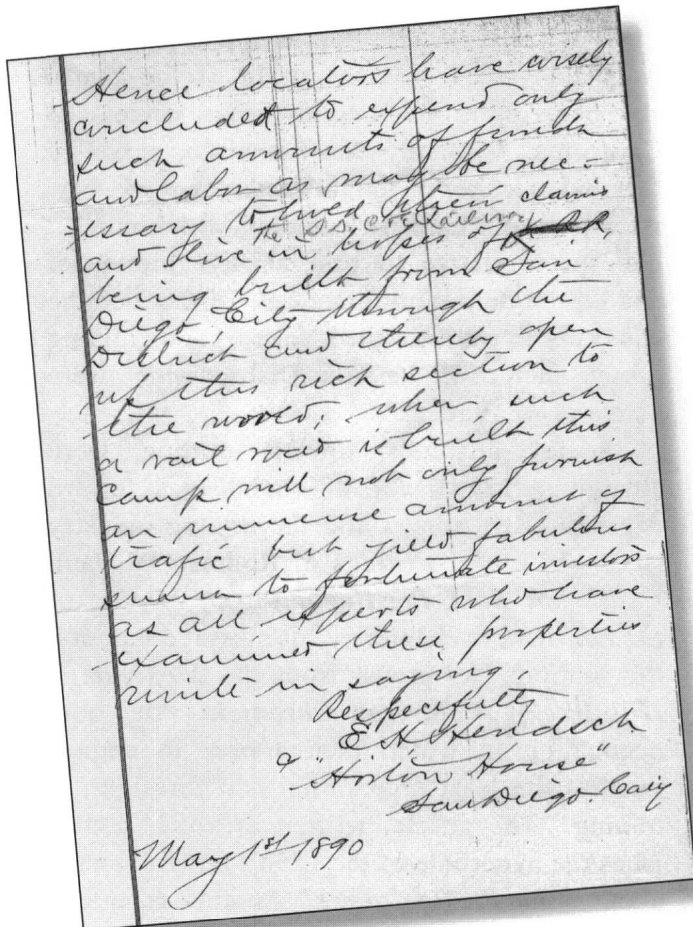 Hence locators have wisely
concluded to expend only
such amounts of funds
and labor as may be nec-
essary to hold their claims
the S.D. Railway
and live in hopes of
being built from San
Diego City through the
District and thereby open
up this rich section to
the world; when such
a rail road is built this
Camp will not only furnish
an immense amount of
trafic but yield fabulous
sums to fortunate investors
as all experts who have
examined these properties
unite in saying,
Respectfully
E H, Hendsch
"Horton House"
San Diego. Caly
May 1st 1890